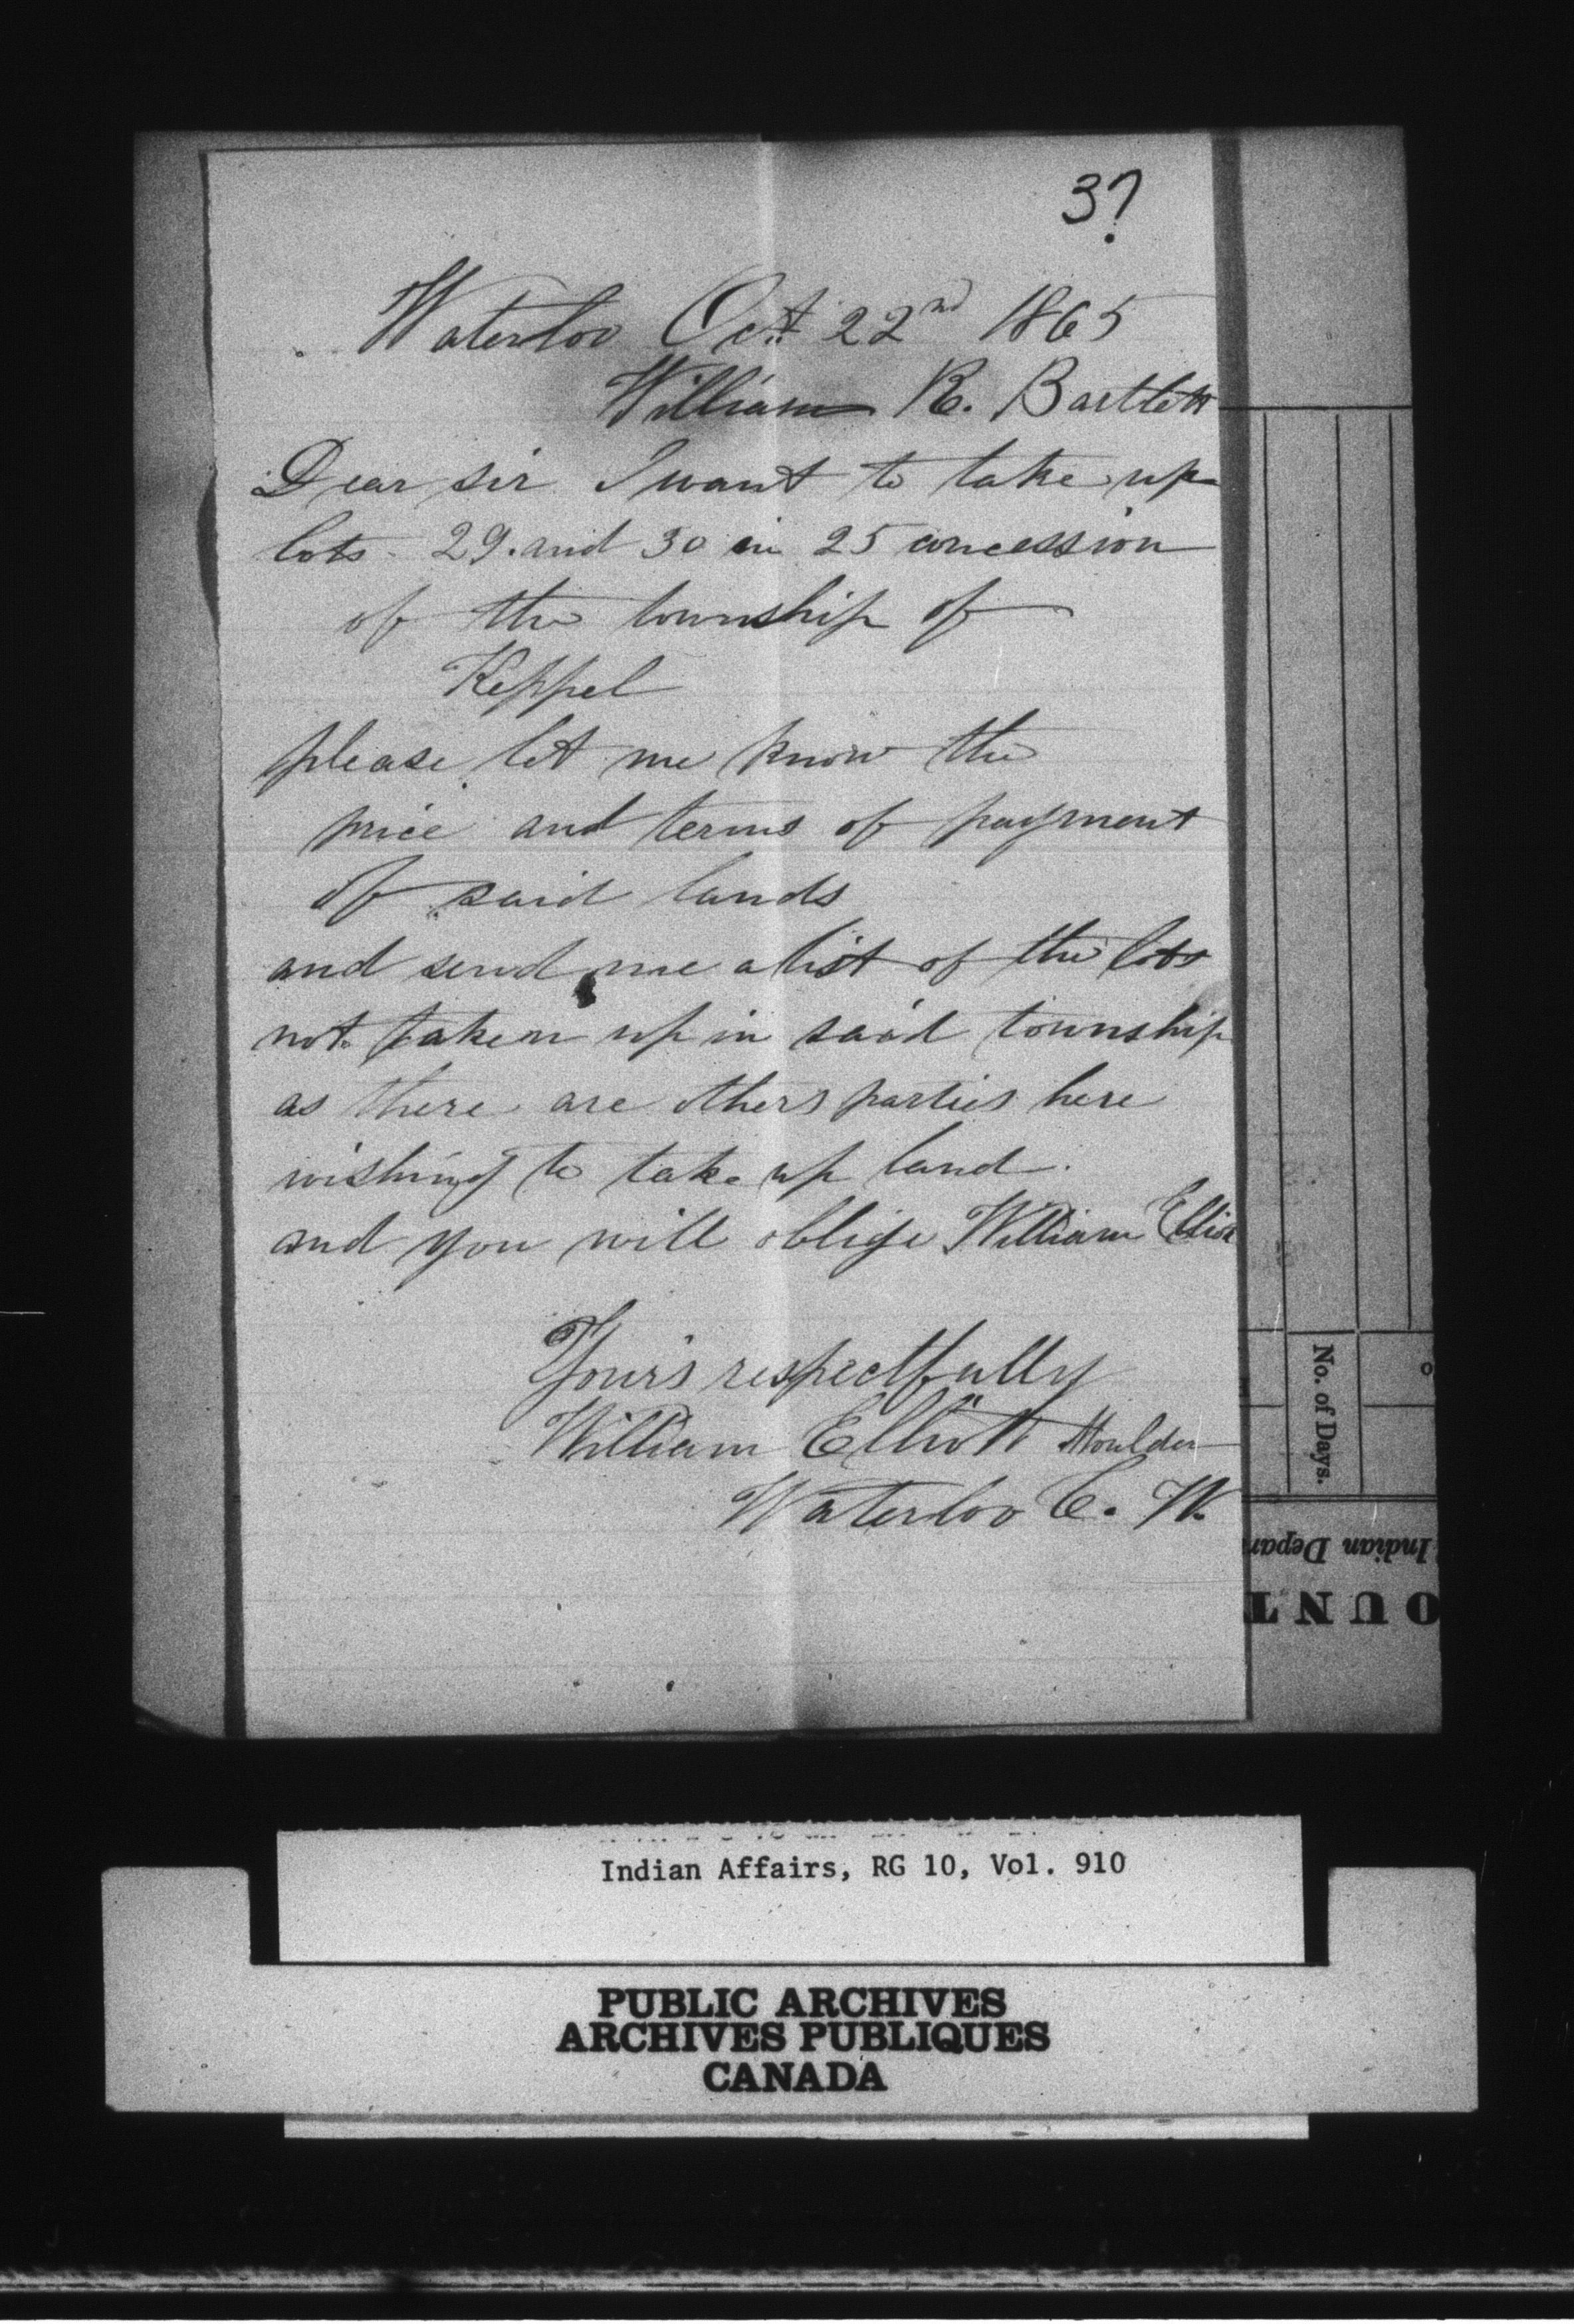 3?
Waterloo Oct 22nd 1865
William R. Bartlett
Dear sir I want to take up
lots 29. and 30 in 25 concession
of the township of
Keppel
please let me know the
price and terms of payment
of said lands
and send me a list of the lots
not taken up in said township
as there are others parties here
wishing to take up land.
and you will oblige William Elliott
Your's respectfully
William Elliott Moulder
Waterloo C. W.
No. of Days.
Indian Depar
OUNT
Indian Affairs, RG 10, Vol. 910
PUBLIC ARCHIVES
ARCHIVES PUBLIQUES
CANADA